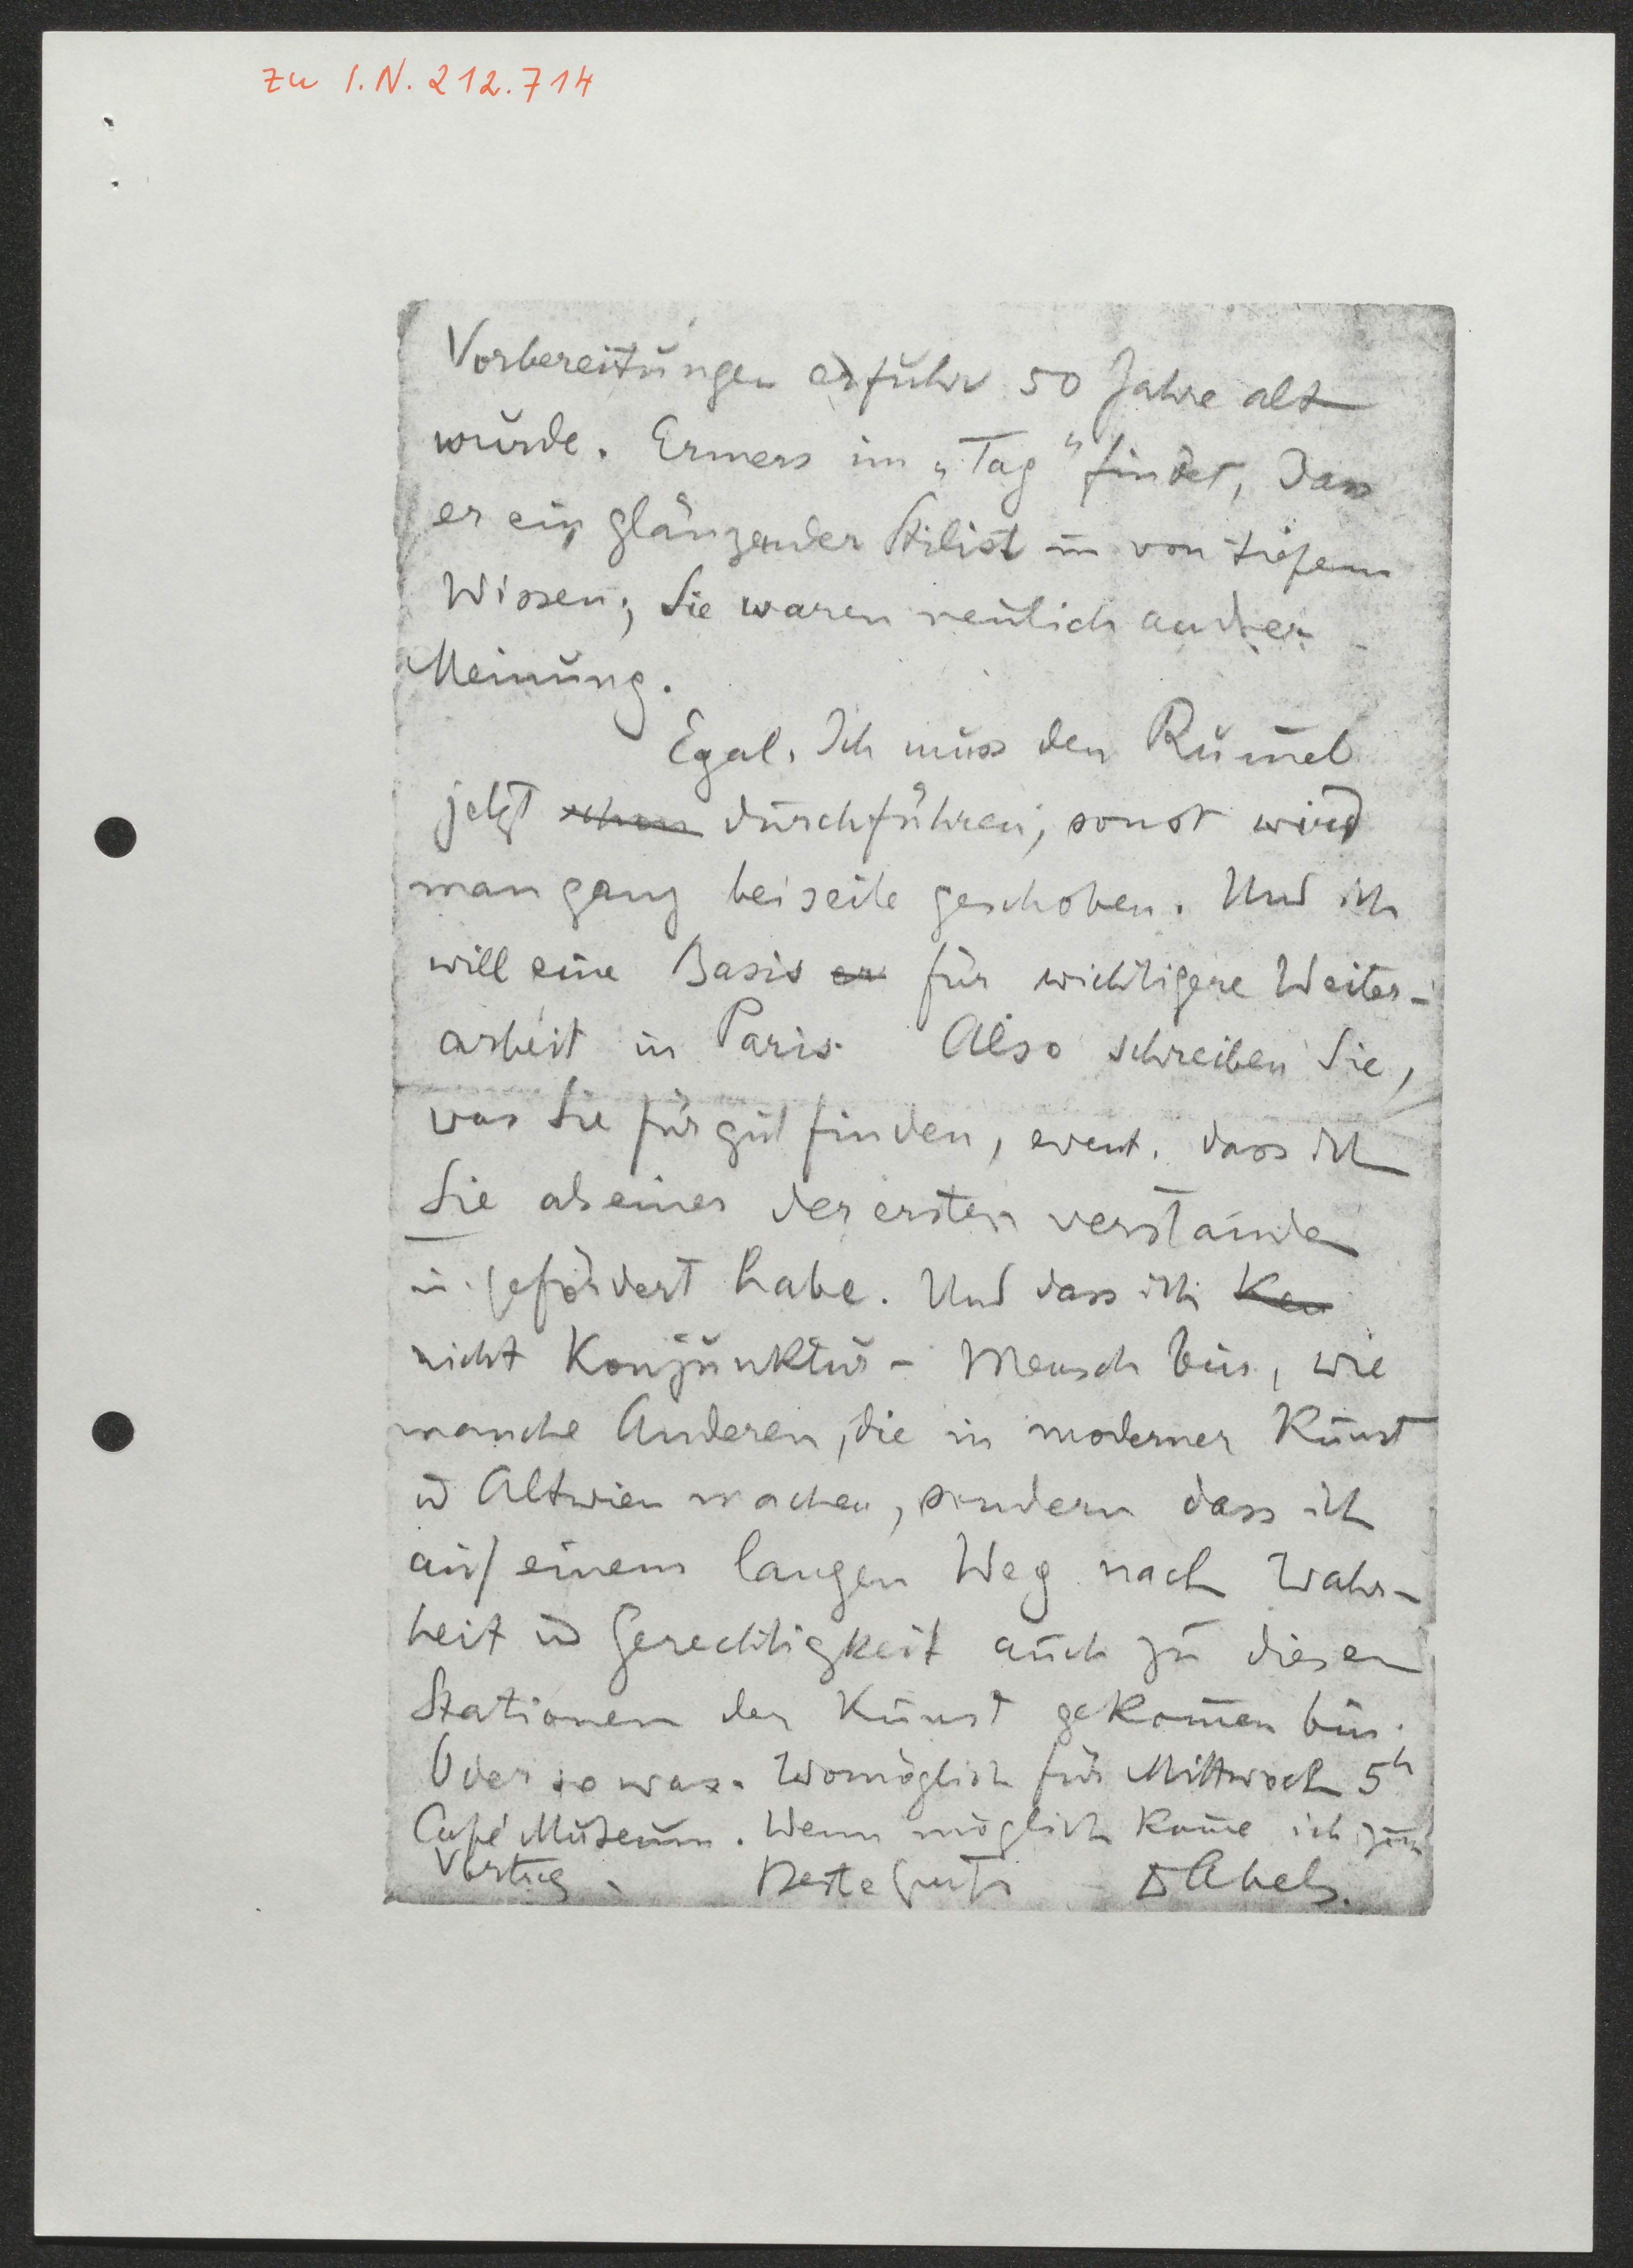 zu I.N. 212.714
Vorbereitungen erfuhr 50 Jahre alt
wurde. Ermers im „Tag" findet, dass
er ein glänzender Stilist u von tiefem
Wissen; Sie waren neulich andrer
Meinung.
Egal. Ich muss den Rum̅el
jetzt schon durchführen, sonst wird
man ganz beiseite geschoben. Und ich
will eine Basis er für wichtigere Weiter-
arbeit in Paris. Also schreiben Sie,
was Sie für gut finden, event. dass ich
Sie als einer der ersten verstanden
u. gefördert habe. Und dass ich Ken
nicht Konjunktur-Mensch bin, wie
manche Anderen, die in moderner Kunst
u Altwien machen, sondern dass ich
auf einem langen Weg nach Wahr-
heit u Gerechtigkeit auch zu diesen
Stationen der Kunst gekom̅en bin.
Oder so was. Womöglich für Mittwoch 5h
Café Museum. Wenn möglich kom̅e ich zum
Vortrag. Beste Grüße